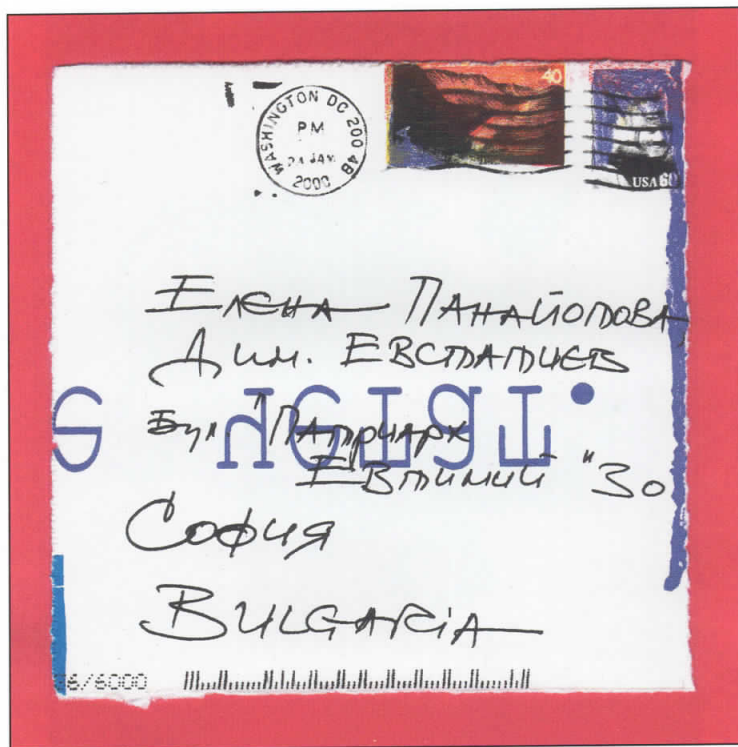 WASHINGTON DC 200 4B
PM
JAN
2000
40
USA 60
Елена Панайотова,
Дим. Евстатиев
Бул. "Патриарх
Евтимий" 30
София
BULGARIA
6/6000